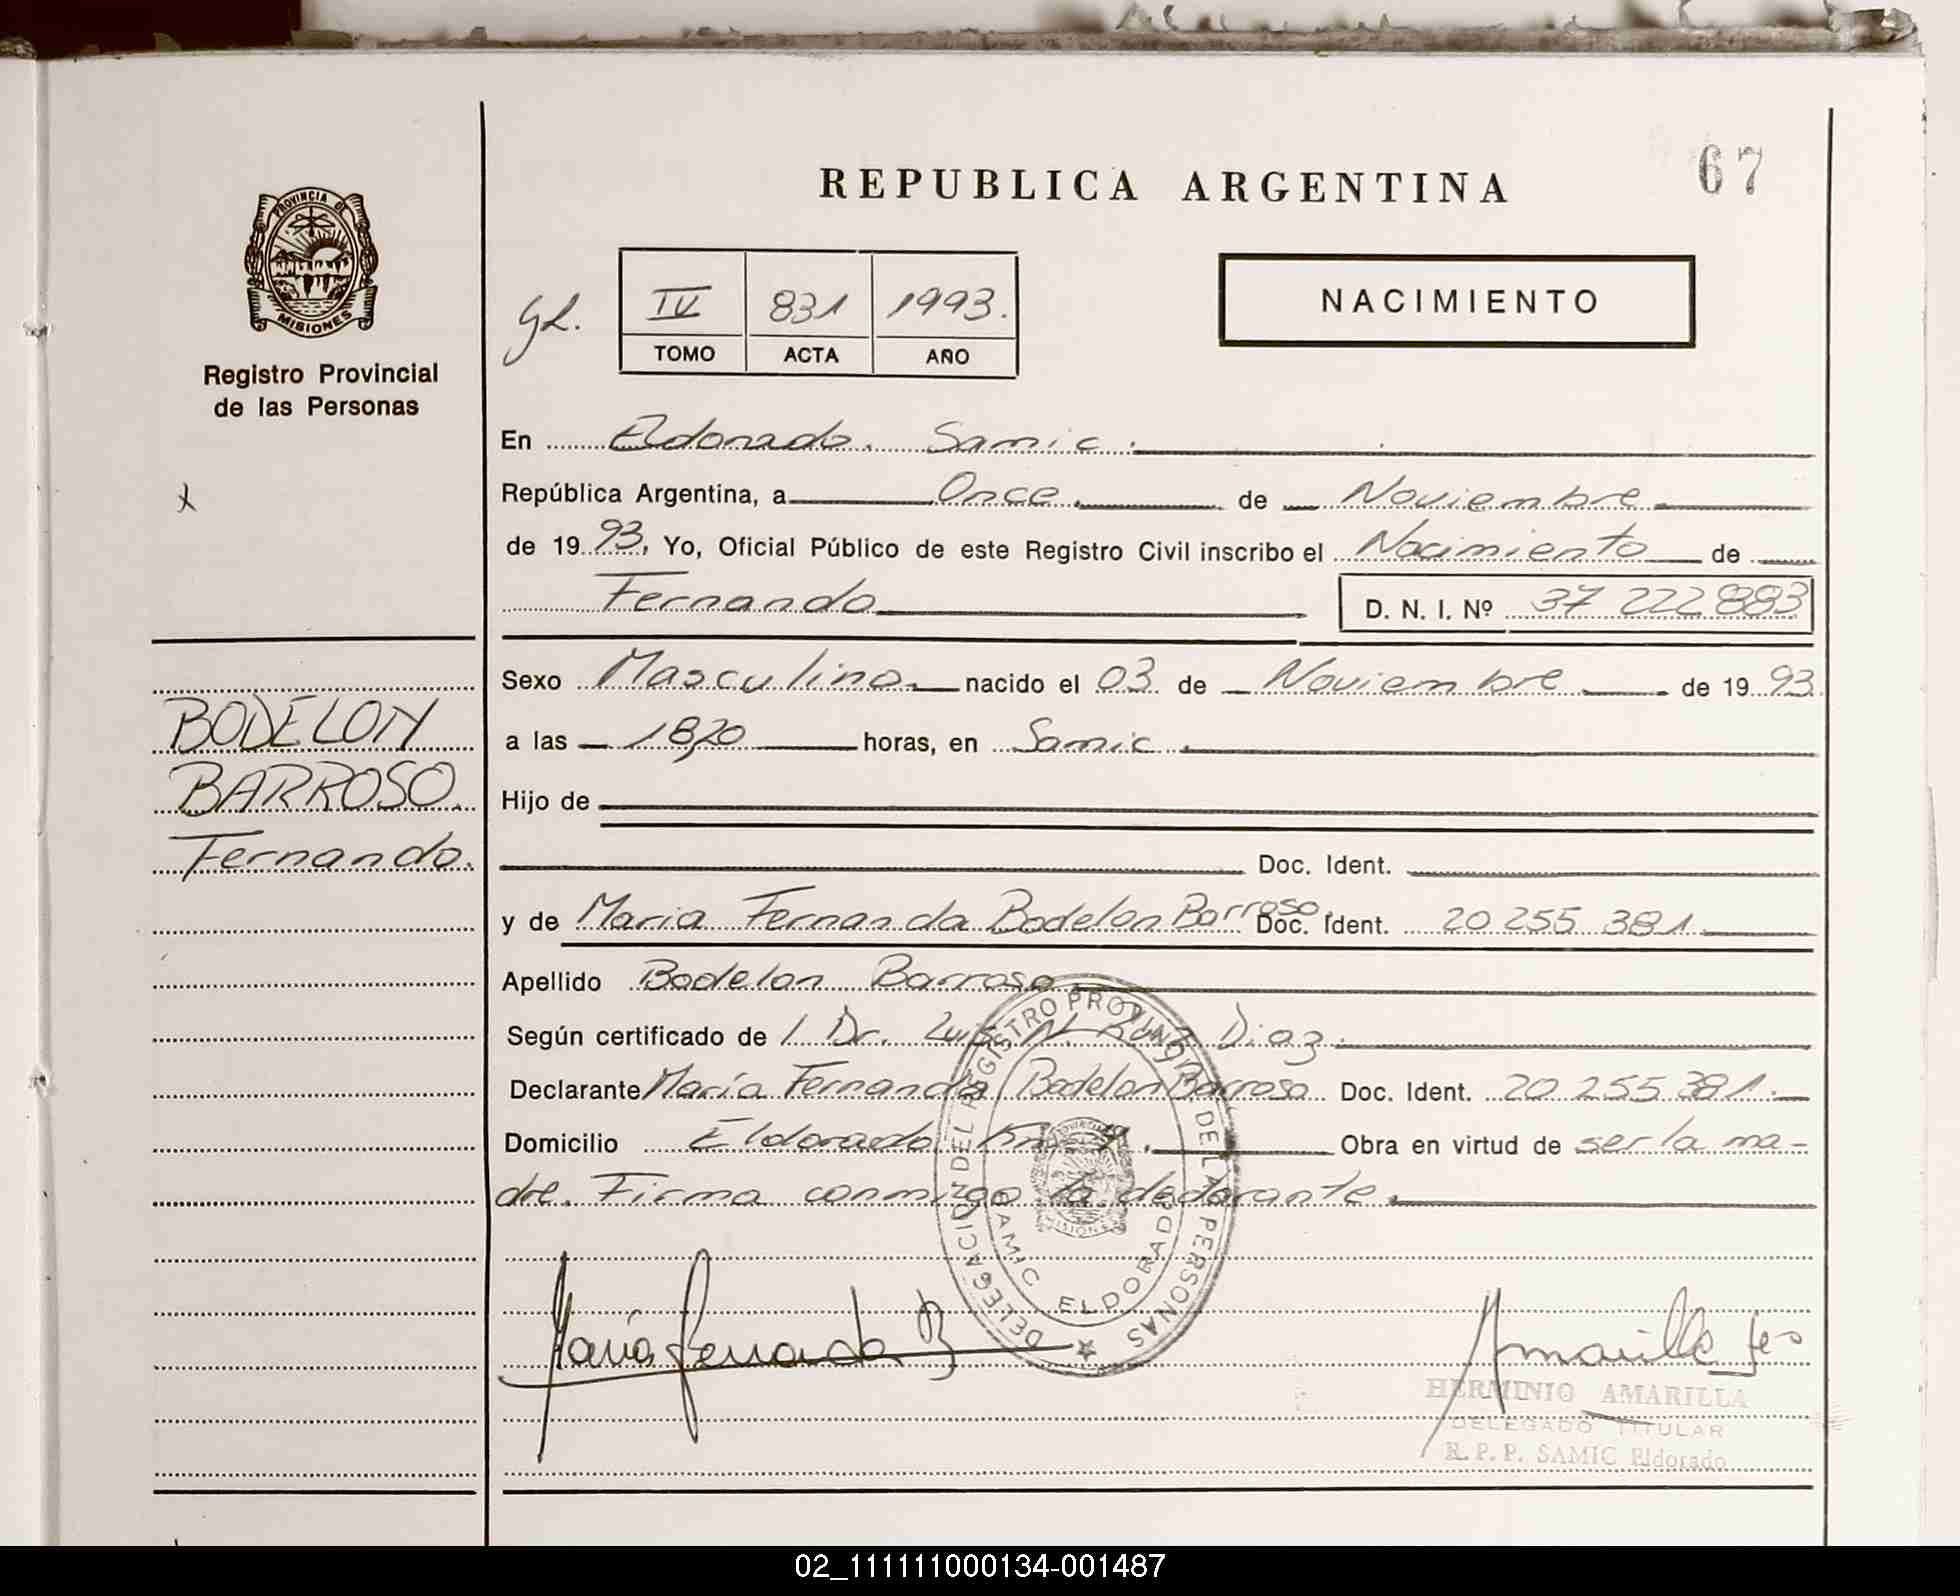 REPUBLICA ARGENTINA
67
PROVINCIA DE
MISIONES
Registro Provincial
de las Personas
IV 831 1993.
TOMO ACTA AÑO
NACIMIENTO
En Eldorado. Samic.
República Argentina, a Once. de Noviembre
de 1993, Yo, Oficial Público de este Registro Civil inscribo el Nacimiento de
Fernando D. N. I. Nº 37 222 883
Sexo Masculino nacido el 03 de Noviembre de 1993
BODELON
a las 18,20 horas, en Samic.
BARROSO
Hijo de
Fernando.
Doc. Ident.
y de Maria Fernanda Bodelon Barroso. Doc. Ident. 20 255 381
Apellido Bodelon Barroso
Según certificado de 1 Dr. Luis N. Diaz.
Declarante María Fernanda Bodelon Barroso Doc. Ident. 20 255 381.
Domicilio Eldorado Km 9. Obra en virtud de ser la ma-
dre. Firma conmigo la declarante.
DELEGACION DEL REGISTRO PROVINCIAL DE LAS PERSONAS
SAMIC ELDORADO
MISIONES
María Fernanda B
Amarilla
HERMINIO AMARILLA
DELEGADO TITULAR
R. P. P. SAMIC Eldorado
02_111111000134-001487